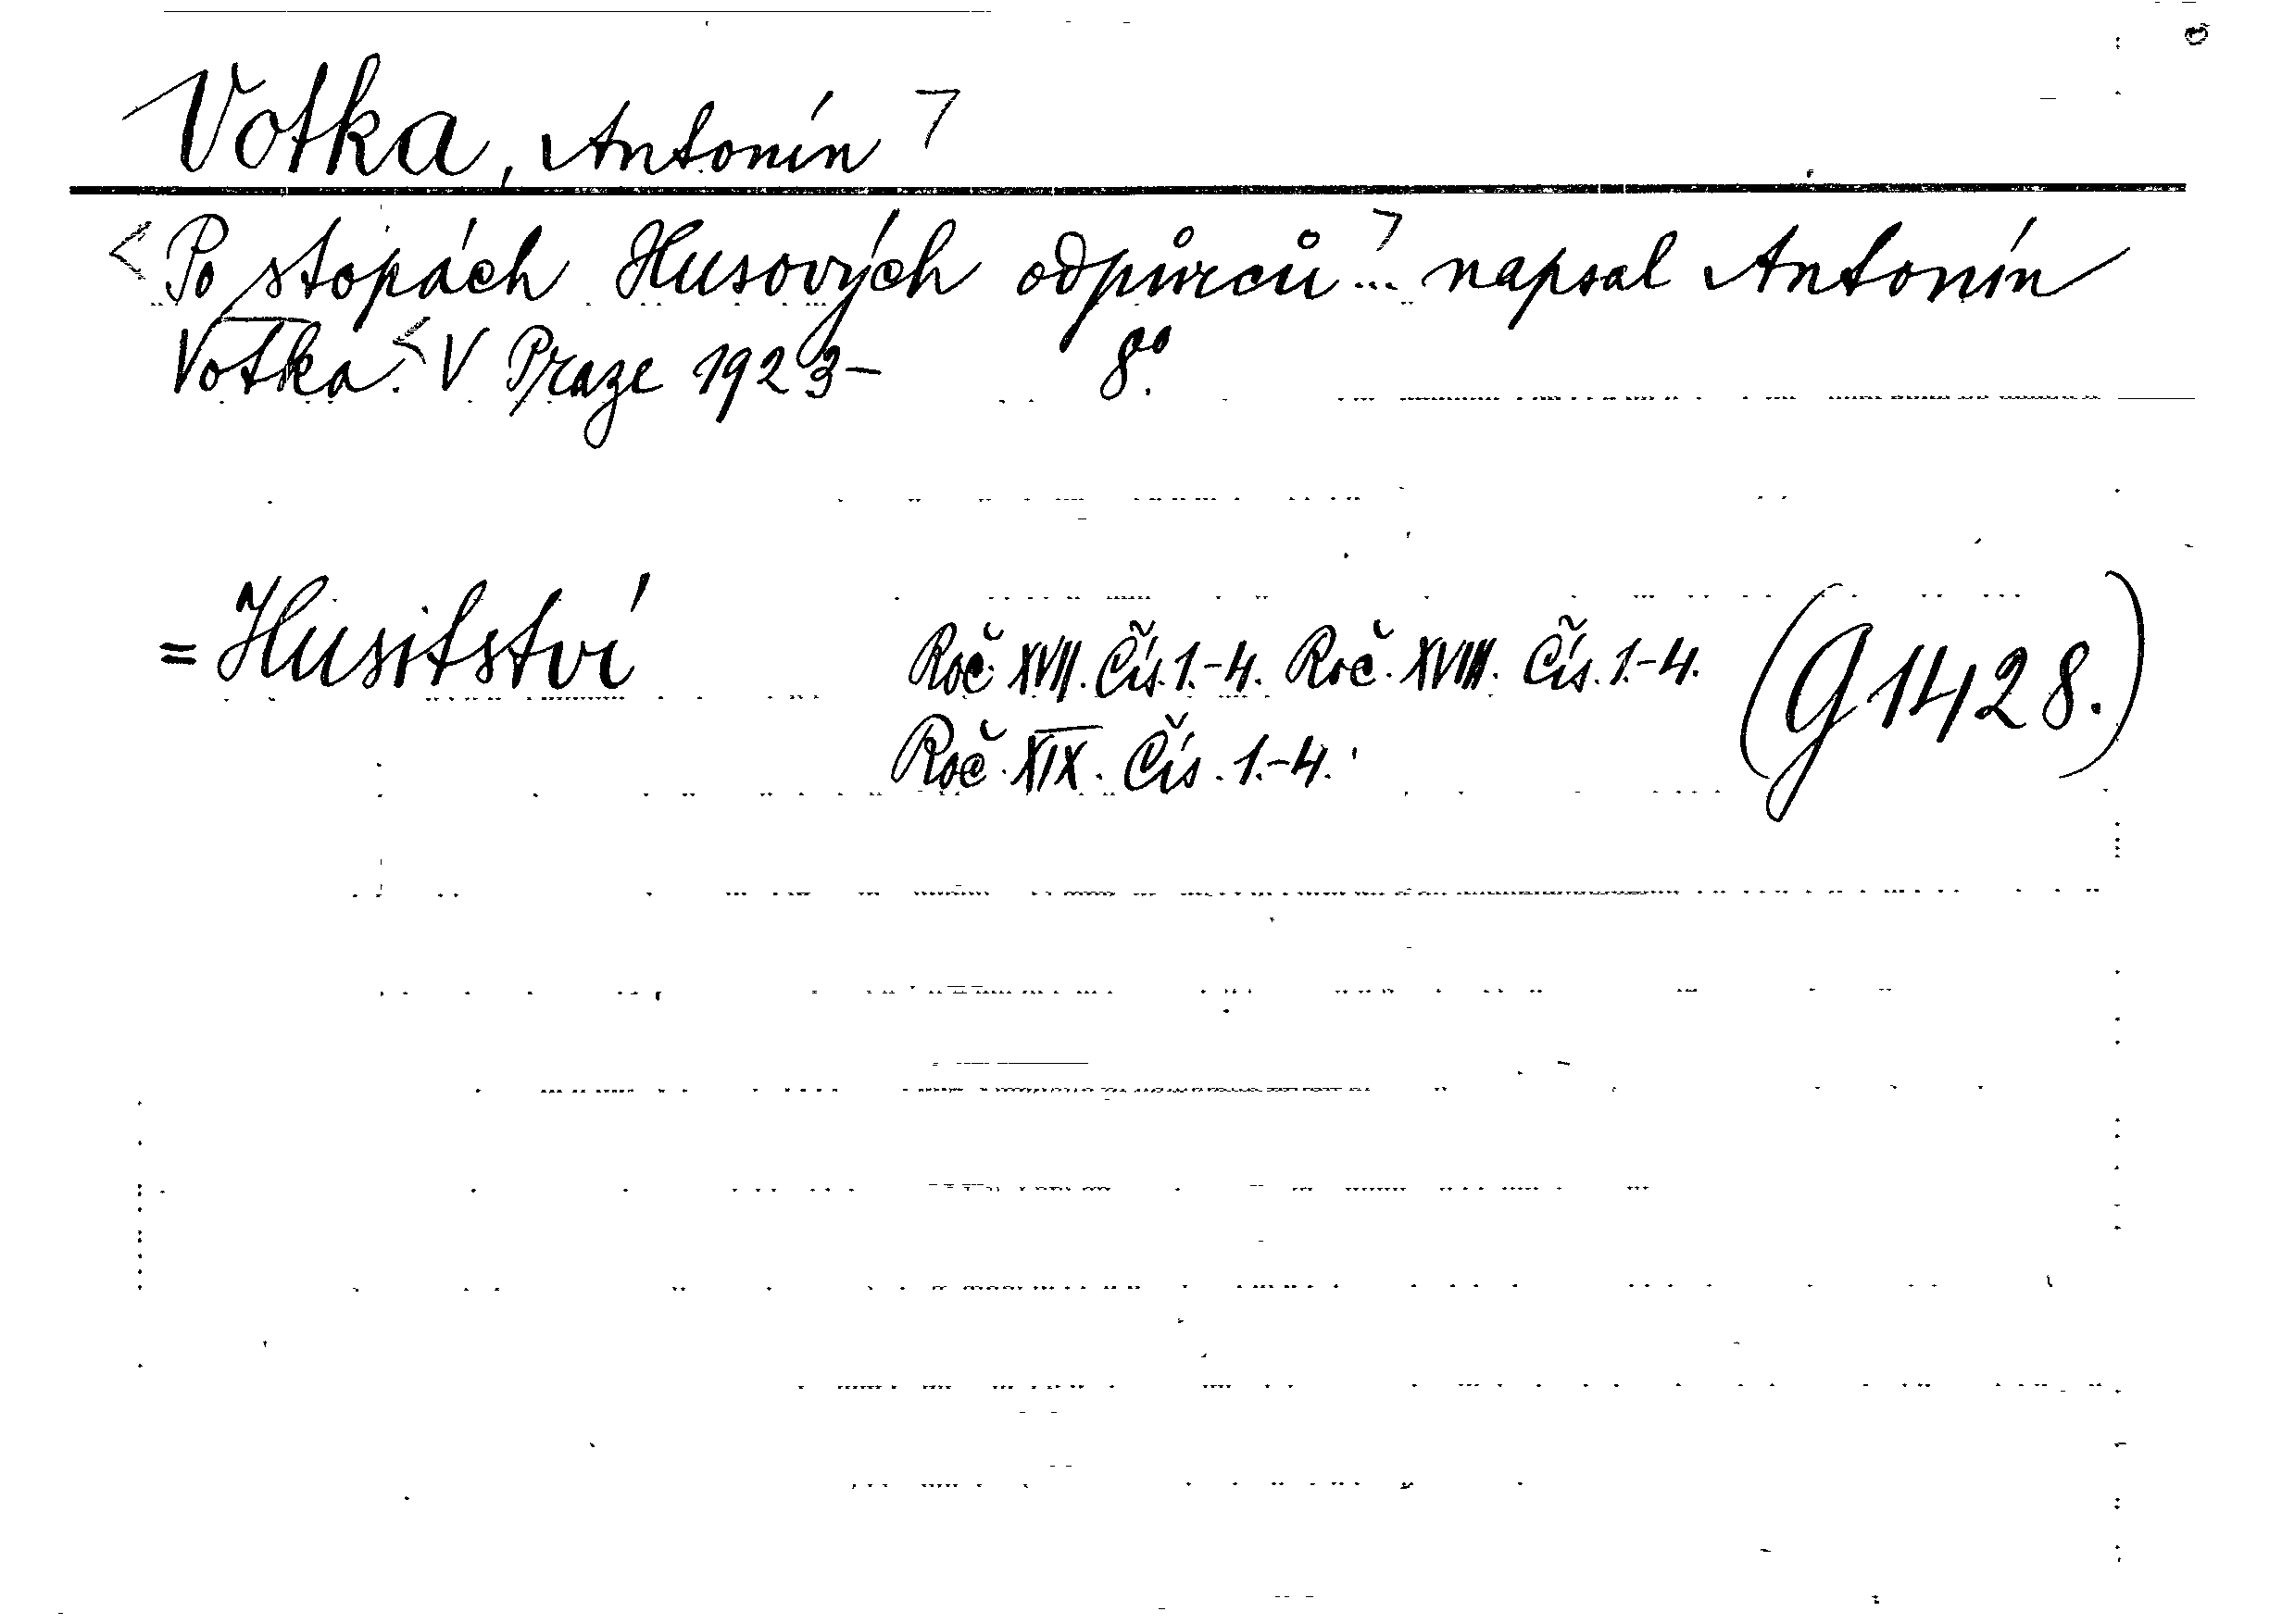 Votka, Antonín >
< Po stopách Husových odpůrců > ... napsal Antonín
Votka. < V Praze 1923- 8.°
= Husitství
Roč. XVII. Čís. 1.-4. Roč. XVIII. Čís. 1.-4. (G 1428.)
Roč. XIX. Čís. 1.-4.